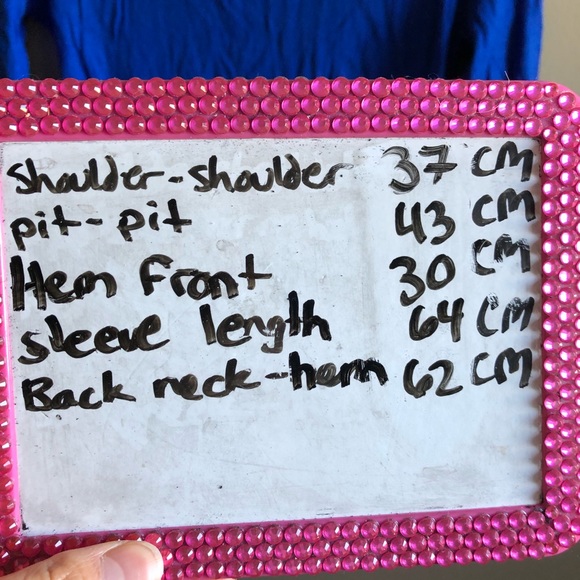 Shoulder-shoulder 37 CM
pit-pit 43 CM
Hem Front 30 CM
sleeve length 64 CM
Back neck-hem 62 CM